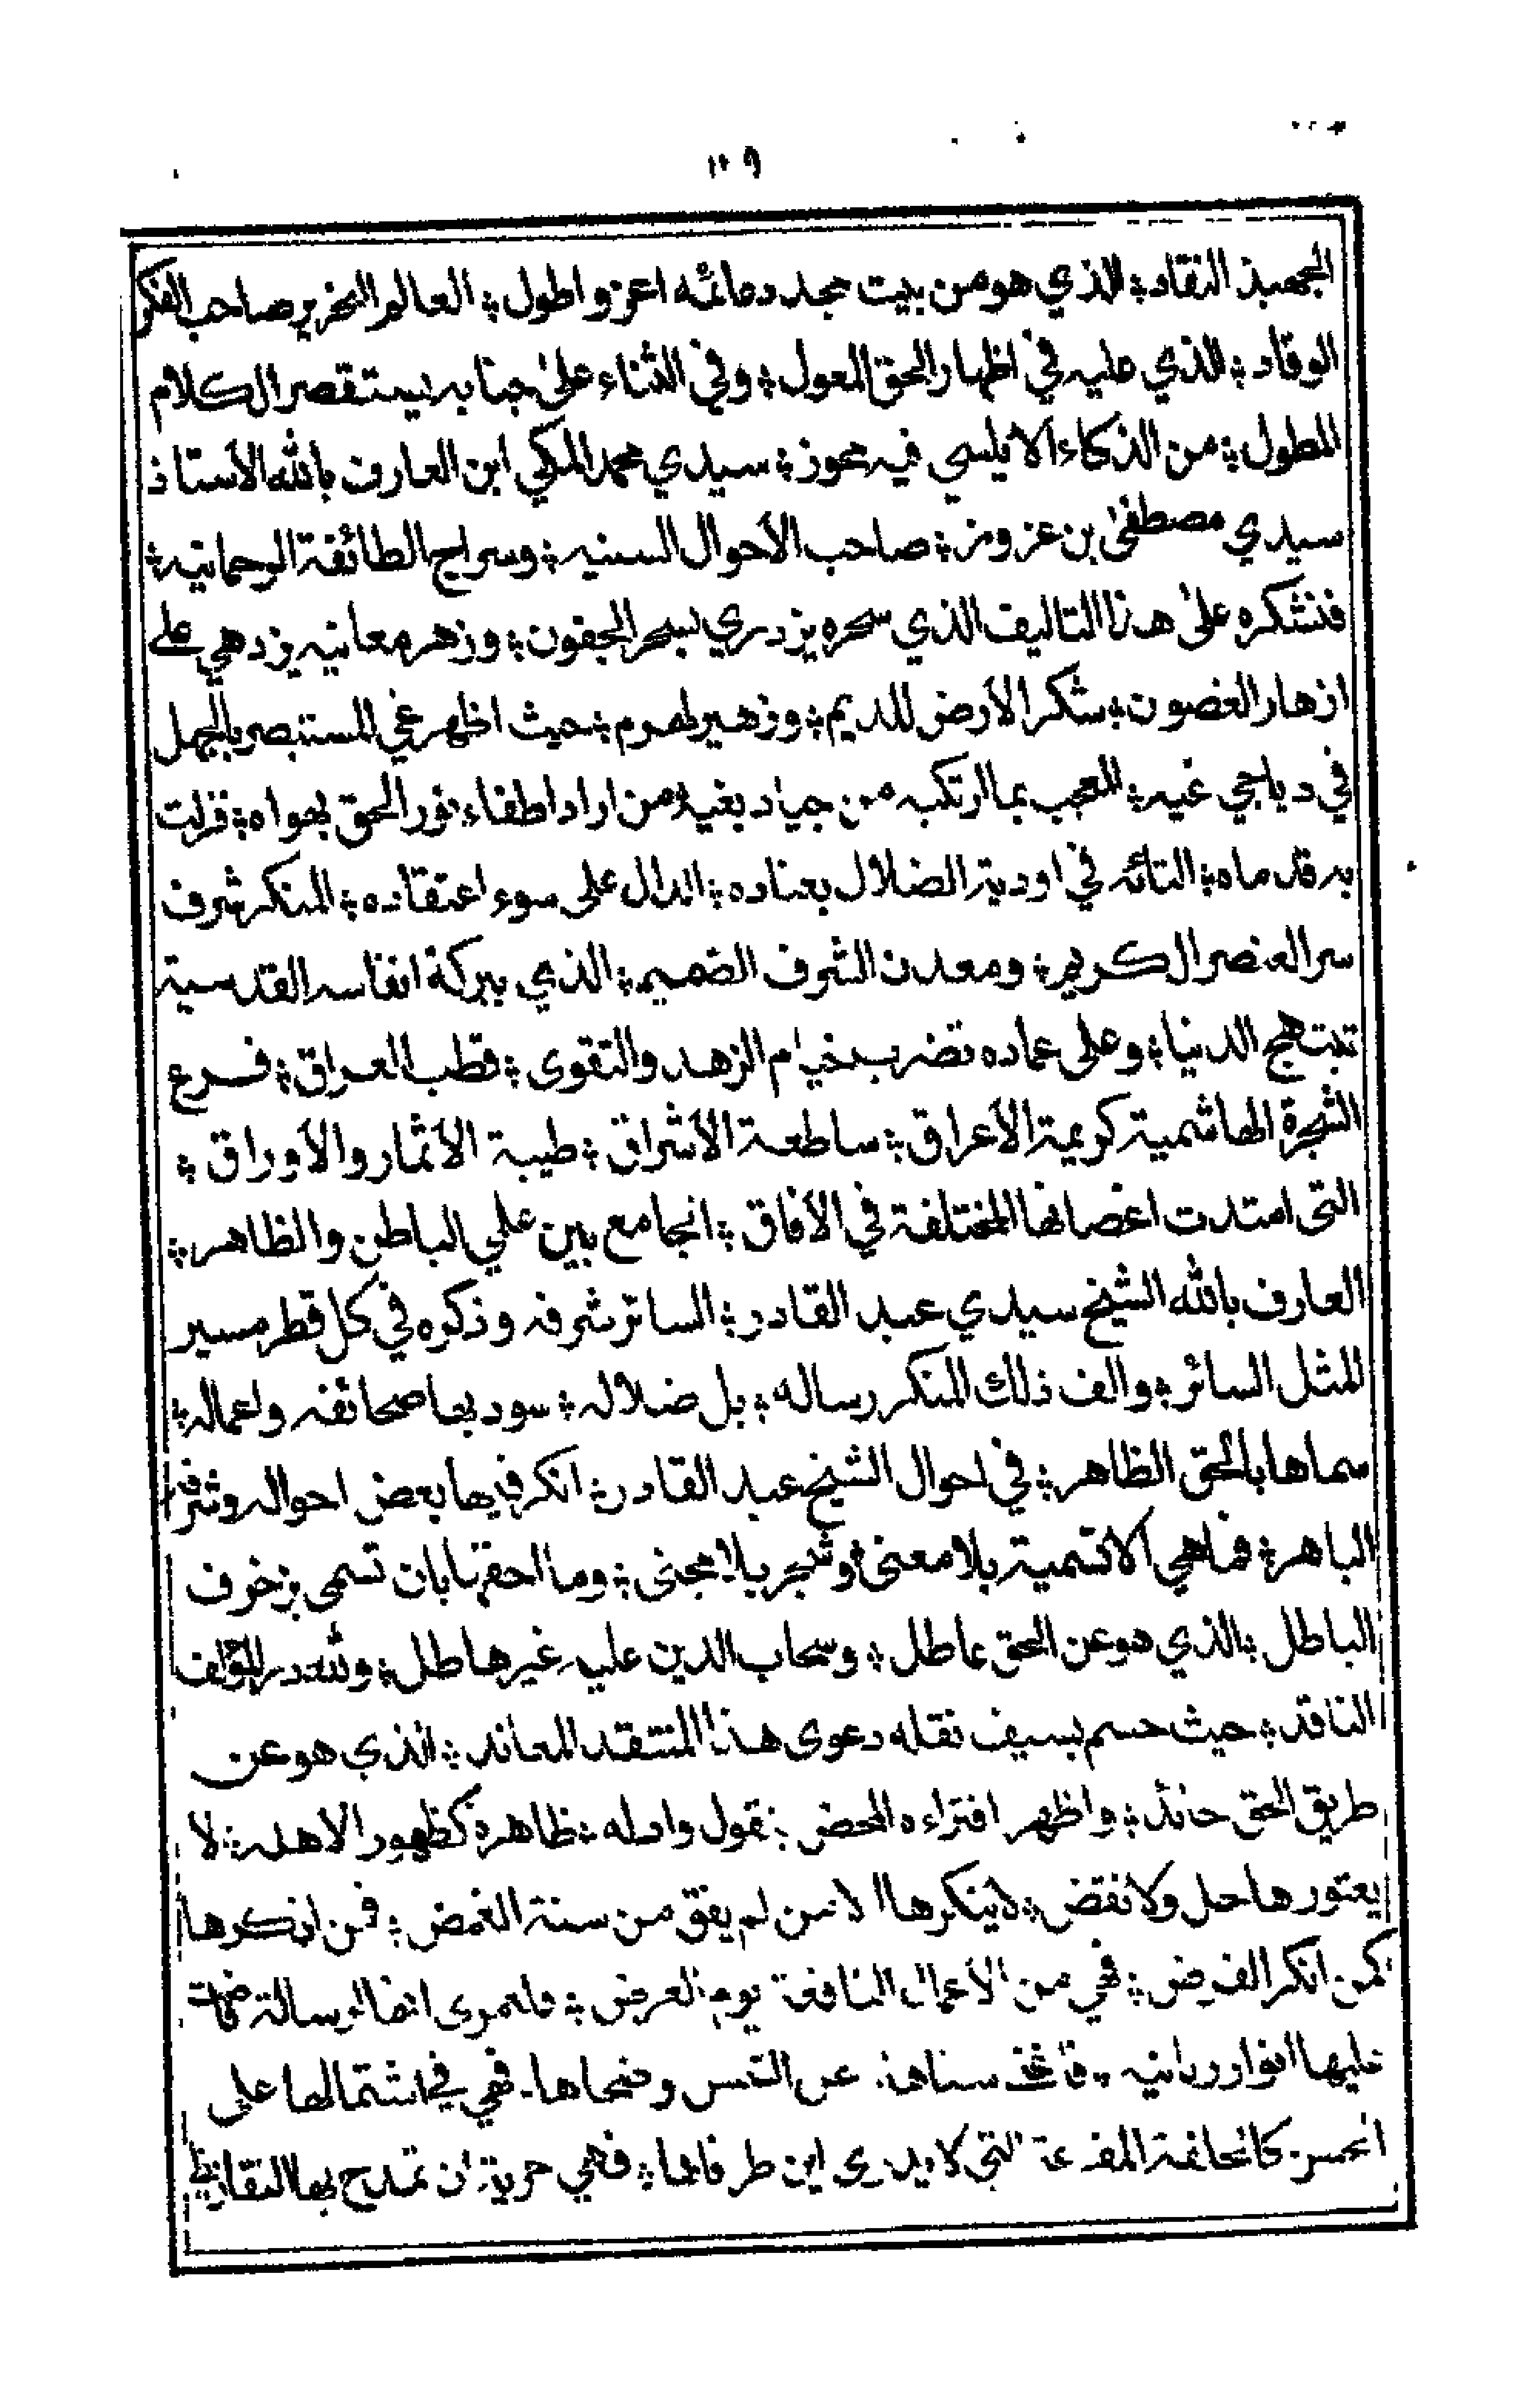 ١٠٩
الجهبذ النقاد ؛ الذي هو من بيت مجد دعائمه اعز واطول ؛ العالم النحرير صاحب الفكر
الوقاد ؛ الذي عليه في اظهار الحق المعول ؛ وفي الثناء على جنابه يستقصر الكلام
المطول ؛ من الذكاء الا يلسي فيه محوز ؛ سيدي محمد المكي ابن العارف بالله الأستاذ
سيدي مصطفى بن عزوز ؛ صاحب الأحوال السنيه ؛ وسراج الطائفة الرحمانيه ؛
فنشكره على هذا التاليف الذي سحره يزدري بسحر الجفون ؛ وزهر معانيه يزدهي على
ازهار الغصون ؛ شكر الأرض للديم ؛ وزهير لهرم ؛ حيث اظهر غي المستبصر بالجهل
في دياجي غيه ؛ المعجب بما ارتكبه من جياد بغيه ؛ من اراد اطفاء نور الحق بهواه ؛ فزلت
به قدماه ؛ التائه في اودية الضلال بعناده ؛ الدال على سوء اعتقاده ؛ المنكر شرف
سر العنصر الكريم ؛ ومعدن الشرف الصميم ؛ الذي ببركة انفاسه القدسية
تبتهج الدنيا ؛ وعلى عماده تضرب خيام الزهد والتقوى ؛ قطب العراق ؛ فرع
الشجرة الهاشمية كريمة الأعراق ؛ ساطعة الأشراق ؛ طيبة الأثمار والأوراق ؛
التي امتدت اغصانها المختلفة في الأفاق ؛ الجامع بين علمي الباطن والظاهر ؛
العارف بالله الشيخ سيدي عبد القادر ؛ السائر شرفه وذكره في كل قطر مسير
المثل السائر ؛ والف ذلك المنكر رساله ؛ بل ضلاله ؛ سود بها صحائفه واعماله ؛
سماها بالحق الظاهر ؛ في احوال الشيخ عبد القادر ؛ انكر فيها بعض احواله وشرفه
الباهر ؛ فما هي الا تسمية بلا معنى ؛ وشجر بلا مجنى ؛ وما احقها بان تسمى بزخرف
الباطل بالذي هو عن الحق عاطل ؛ وسحاب الدين عليه غير هاطل ؛ ولله در المؤلف
الناقد ؛ حيث حسم بسيف نقله دعوى هذا المنتقد المعاند ؛ الذي هو عن
طريق الحق حائد ؛ واظهر افتراءه المحض ؛ بقول وادله ؛ ظاهرة كظهور الاهله ؛ لا
يعتورها حل ولا نقض ؛ لا ينكرها الا من لم يفق من سنة الغمض ؛ فمن انكرها
كمن انكر الفرض ؛ فهي من الأعمال النافعة يوم العرض ؛ فلعمرى انها لرسالة فاضت
عليها انوار ربانيه ؛ سناها عن الشمس وضحاها ؛ فهي في اشتمالها على
الحسن كالحلقة المفرغة التي لا يدرى اين طرفاها ؛ فهي حرية ان تمدح بها التقاريظ